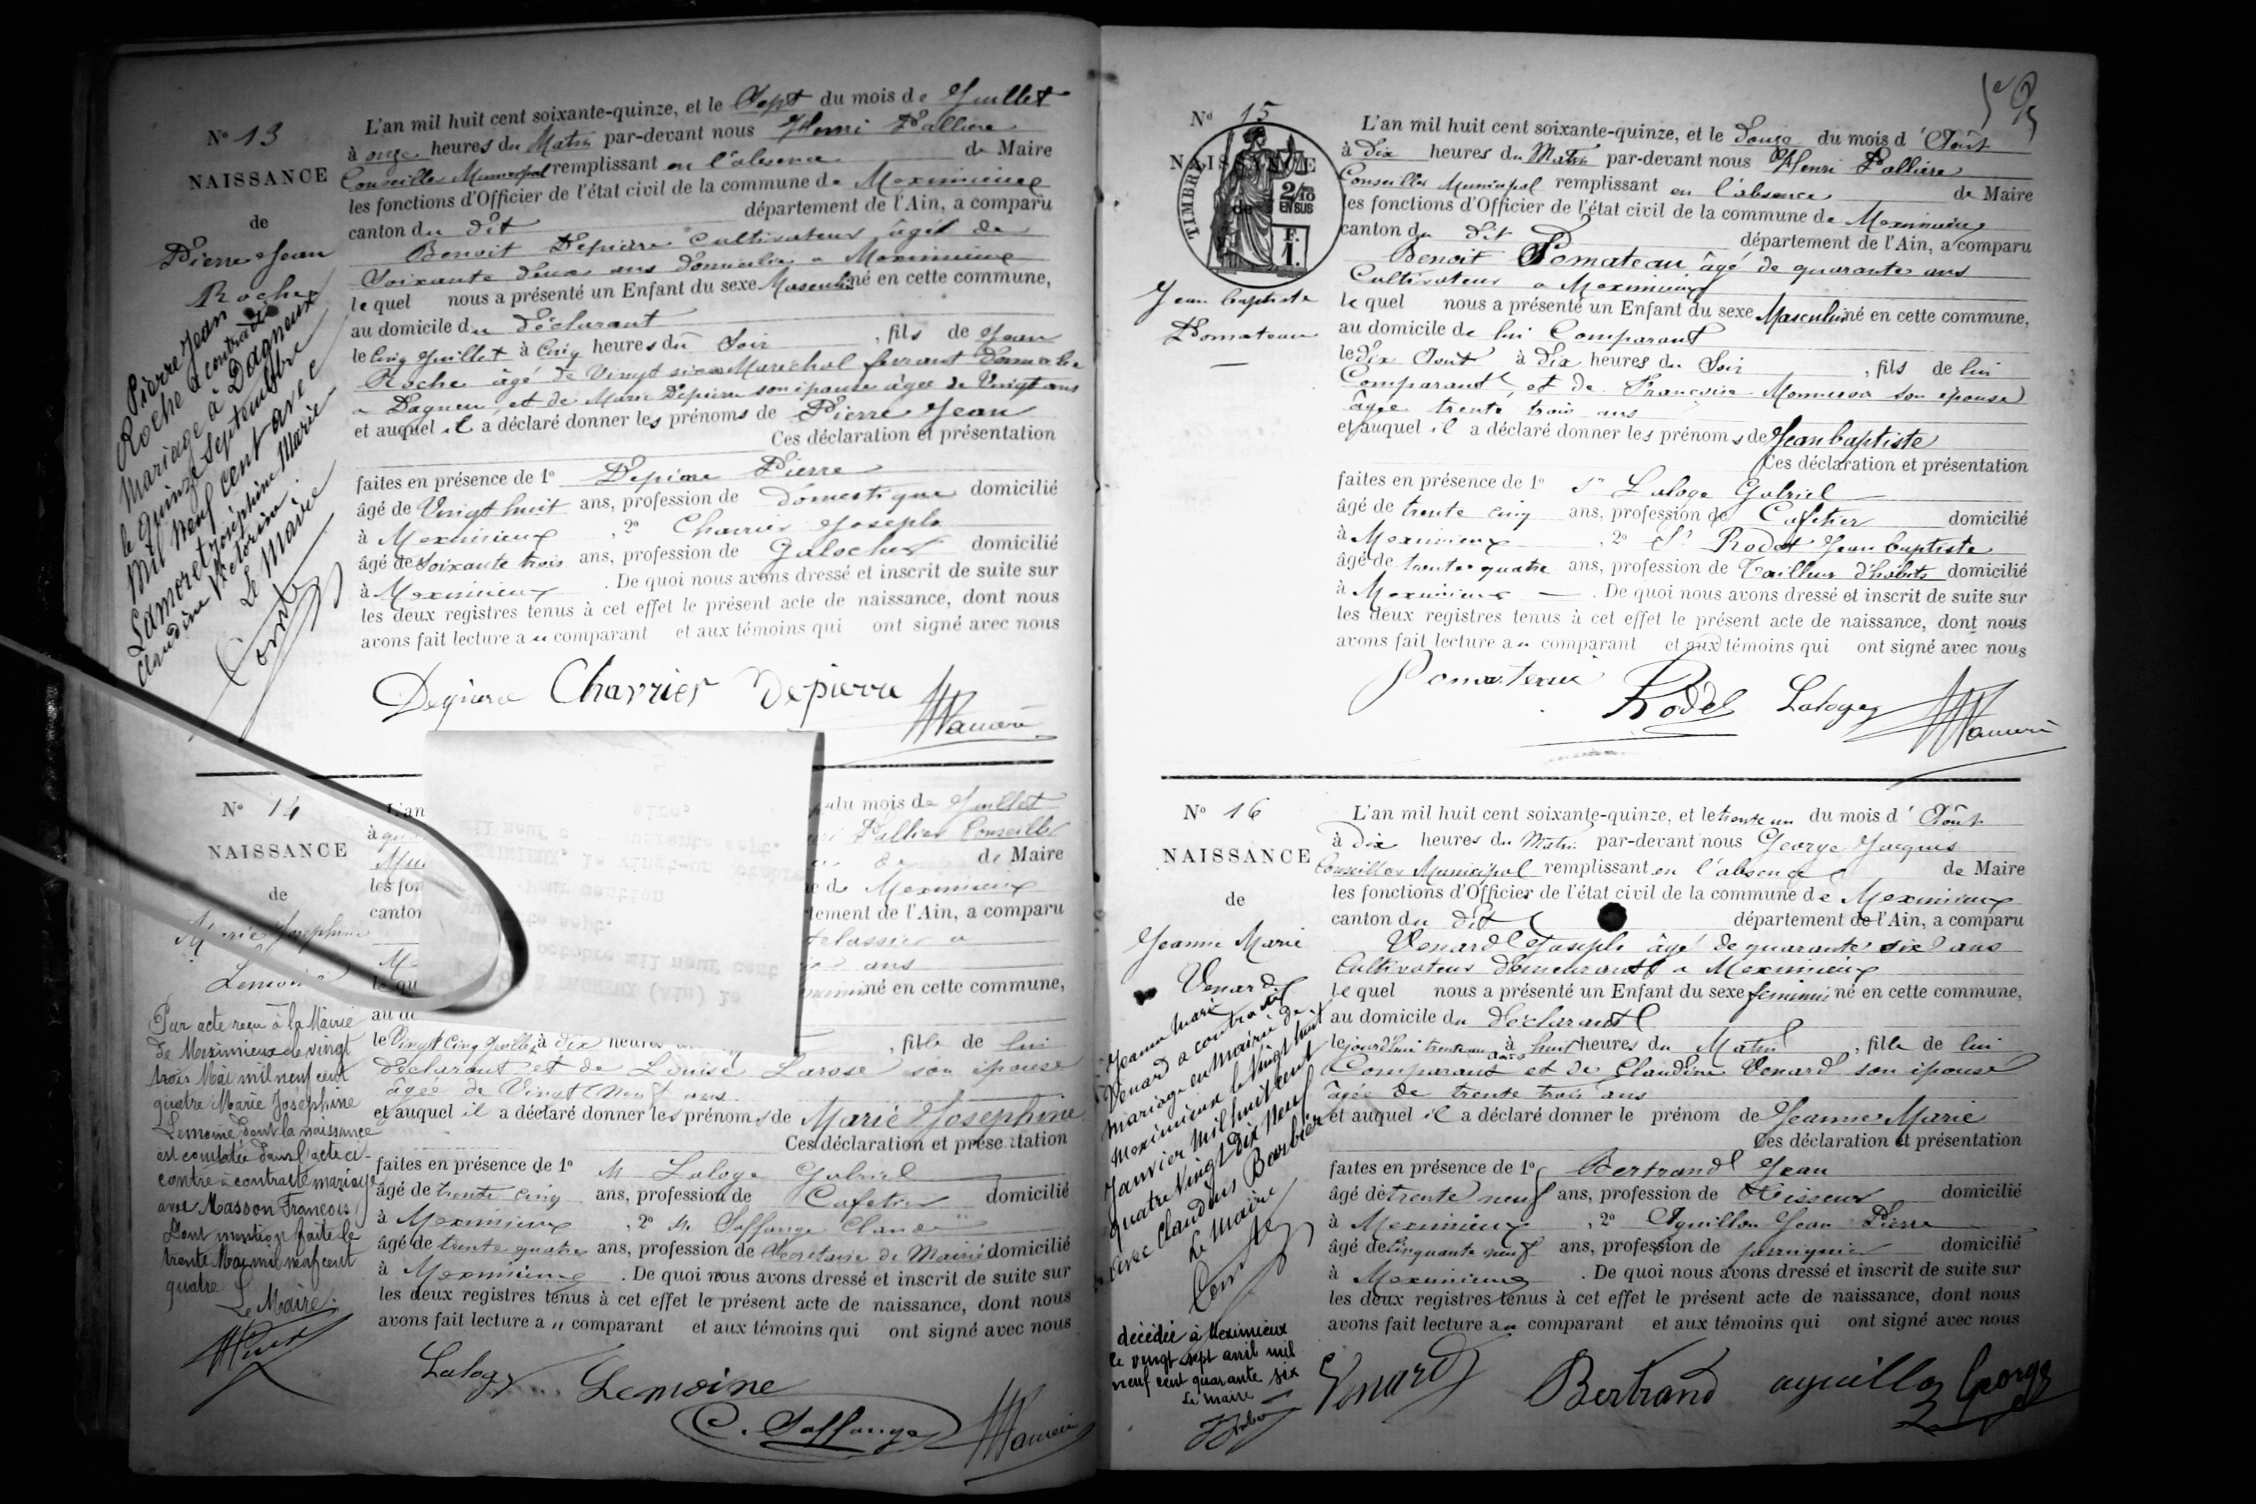 N° 13
NAISSANCE
de
Pierre Jean
Roche
L'an mil huit cent soixante-quinze, et le Sept du mois de Juillet
à onze heures du Matin par-devant nous Henri Pallière
Conseiller Municipal remplissant en l'absence de Maire
les fonctions d'Officier de l'état civil de la commune de Meximieux
canton du dit département de l'Ain, a comparu
Benoit Depierre Cultivateur âgé de
Soixante deux ans domicilié a Meximieux
le quel nous a présenté un Enfant du sexe Masculin né en cette commune,
au domicile du Déclarant
le Cinq Juillet à Cinq heures du Soir , fils de Jean
Roche âgé de Vingt six ans Maréchal ferrant domicilié
a Dagneu, et de Marie Depierre son épouse âgée de Vingt ans
et auquel il a déclaré donner les prénoms de Pierre Jean
Ces déclaration et présentation
faites en présence de 1° Depierre Pierre
âgé de Vingt huit ans, profession de domestique domicilié
à Meximieux , 2° Charrier Joseph
âgé de Soixante trois ans, profession de Galocher domicilié
à Meximieux . De quoi nous avons dressé et inscrit de suite sur
les deux registres tenus à cet effet le présent acte de naissance, dont nous
avons fait lecture au comparant et aux témoins qui ont signé avec nous
Depierre Charrier Depierre
Pierre Jean
Roche a contracté
mariage à Dagneux
le quinze Septembre
mil neuf cent avec
Lamoret Joséphine Marie
Claudine Victorine.
Le Maire
N° 14
NAISSANCE
de
Marie Josephine
Lemoine
L'an
du mois de Juillet
Pallière Conseiller
de Maire
les fon
de Meximieux
canton
département de l'Ain, a comparu
a
ans
le qu
né en cette commune,
au do
le Vingt Cinq Juillet à dix heures , fille de lui
déclarant et de Louise Larose son épouse
âgée de Vingt Neuf ans
et auquel il a déclaré donner les prénoms de Marie Josephine
Ces déclaration et présentation
faites en présence de 1° M Laloge Gabriel
âgé de trente cinq ans, profession de Cafetier domicilié
à Meximieux , 2° M. Saffange Claude
âgé de trente quatre ans, profession de Secrétaire de Mairie domicilié
à Meximieux . De quoi nous avons dressé et inscrit de suite sur
les deux registres tenus à cet effet le présent acte de naissance, dont nous
avons fait lecture au comparant et aux témoins qui ont signé avec nous
Laloge Lemoine
C. Saffange
Par acte reçu à la Mairie
de Meximieux le vingt
trois Mai mil neuf cent
quatre Marie Joséphine
Lemoine dont la naissance
est constatée dans l'acte ci-
contre a contracté mariage
avec Masson François
Dont mention faite le
trente Mai mil neuf cent
quatre
Le Maire.
N° 15
NAISSANCE
de
TIMBRE
2/10
EN SUS
F.
1.
Jean baptiste
Pomateau
L'an mil huit cent soixante-quinze, et le douze du mois d'Août
à Dix heures du Matin par-devant nous Henri Pallière
Conseiller Municipal remplissant en l'absence de Maire
les fonctions d'Officier de l'état civil de la commune de Meximieux
canton du dit département de l'Ain, a comparu
Benoit Pomateau âgé de quarante ans
Cultivateur a Meximieux
le quel nous a présenté un Enfant du sexe Masculin né en cette commune,
au domicile de lui Comparant
le dix Aout à dix heures du Soir , fils de lui
Comparant, et de Françoise Monnerea son épouse
âgée trente trois ans
et auquel il a déclaré donner les prénoms de Jean baptiste
Ces déclaration et présentation
faites en présence de 1° Sr Laloge Gabriel
âgé de trente cinq ans, profession de Cafetier domicilié
à Meximieux , 2° Sr Rodet Jean baptiste
âgé de trente quatre ans, profession de Tailleur d'habits domicilié
à Meximieux . De quoi nous avons dressé et inscrit de suite sur
les deux registres tenus à cet effet le présent acte de naissance, dont nous
avons fait lecture au comparant et aux témoins qui ont signé avec nous
Pomateau Rodet Laloge
N° 16
NAISSANCE
de
Jeanne Marie
Venard
L'an mil huit cent soixante-quinze, et le trente un du mois d'Août
à dix heures du Matin par-devant nous George Jacques
Conseiller Municipal remplissant en l'absence de Maire
les fonctions d'Officier de l'état civil de la commune de Meximieux
canton du dit département de l'Ain, a comparu
Venard Joseph âgé de quarante six ans
Cultivateur demeurant a Meximieux
le quel nous a présenté un Enfant du sexe féminin né en cette commune,
au domicile du Déclarant
le jourd'hui trente un Août à huit heures du Matin , fille de lui
Comparant et de Claudine Venard son épouse
âgée de trente trois ans
et auquel il a déclaré donner le prénom de Jeanne Marie
Ces déclaration et présentation
faites en présence de 1° Bertrand Jean
âgé de trente neuf ans, profession de Tisseur domicilié
à Meximieux , 2° Aguillon Jean Pierre
âgé de Cinquante neuf ans, profession de domicilié
à Meximieux . De quoi nous avons dressé et inscrit de suite sur
les deux registres tenus à cet effet le présent acte de naissance, dont nous
avons fait lecture au comparant et aux témoins qui ont signé avec nous
Venard Bertrand aguillon George
Jeanne Marie
Venard a contracté
mariage en mairie de
Meximieux le Vingt huit
Janvier mil huit cent
quatre Vingt dix Neuf
avec Claudius Barbier
Le Maire
décédée à Meximieux
le vingt sept avril mil
neuf cent quarante six
Le maire